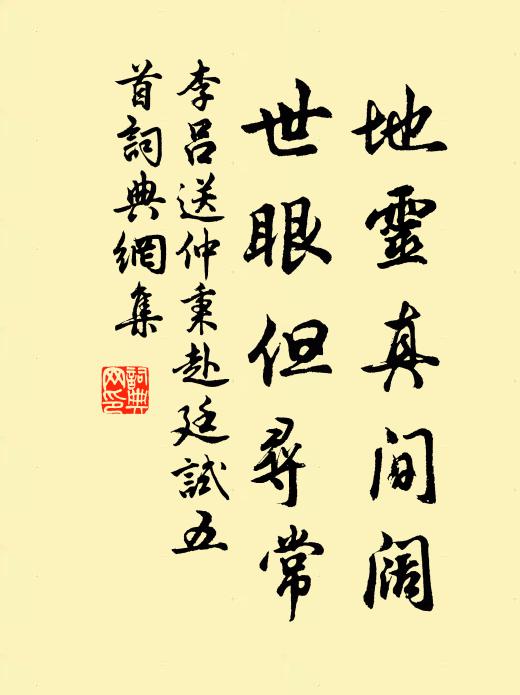 地靈真间阔
世眼但尋常
李吕送仲秉赴廷試五
首詞典網集
詞典
网印